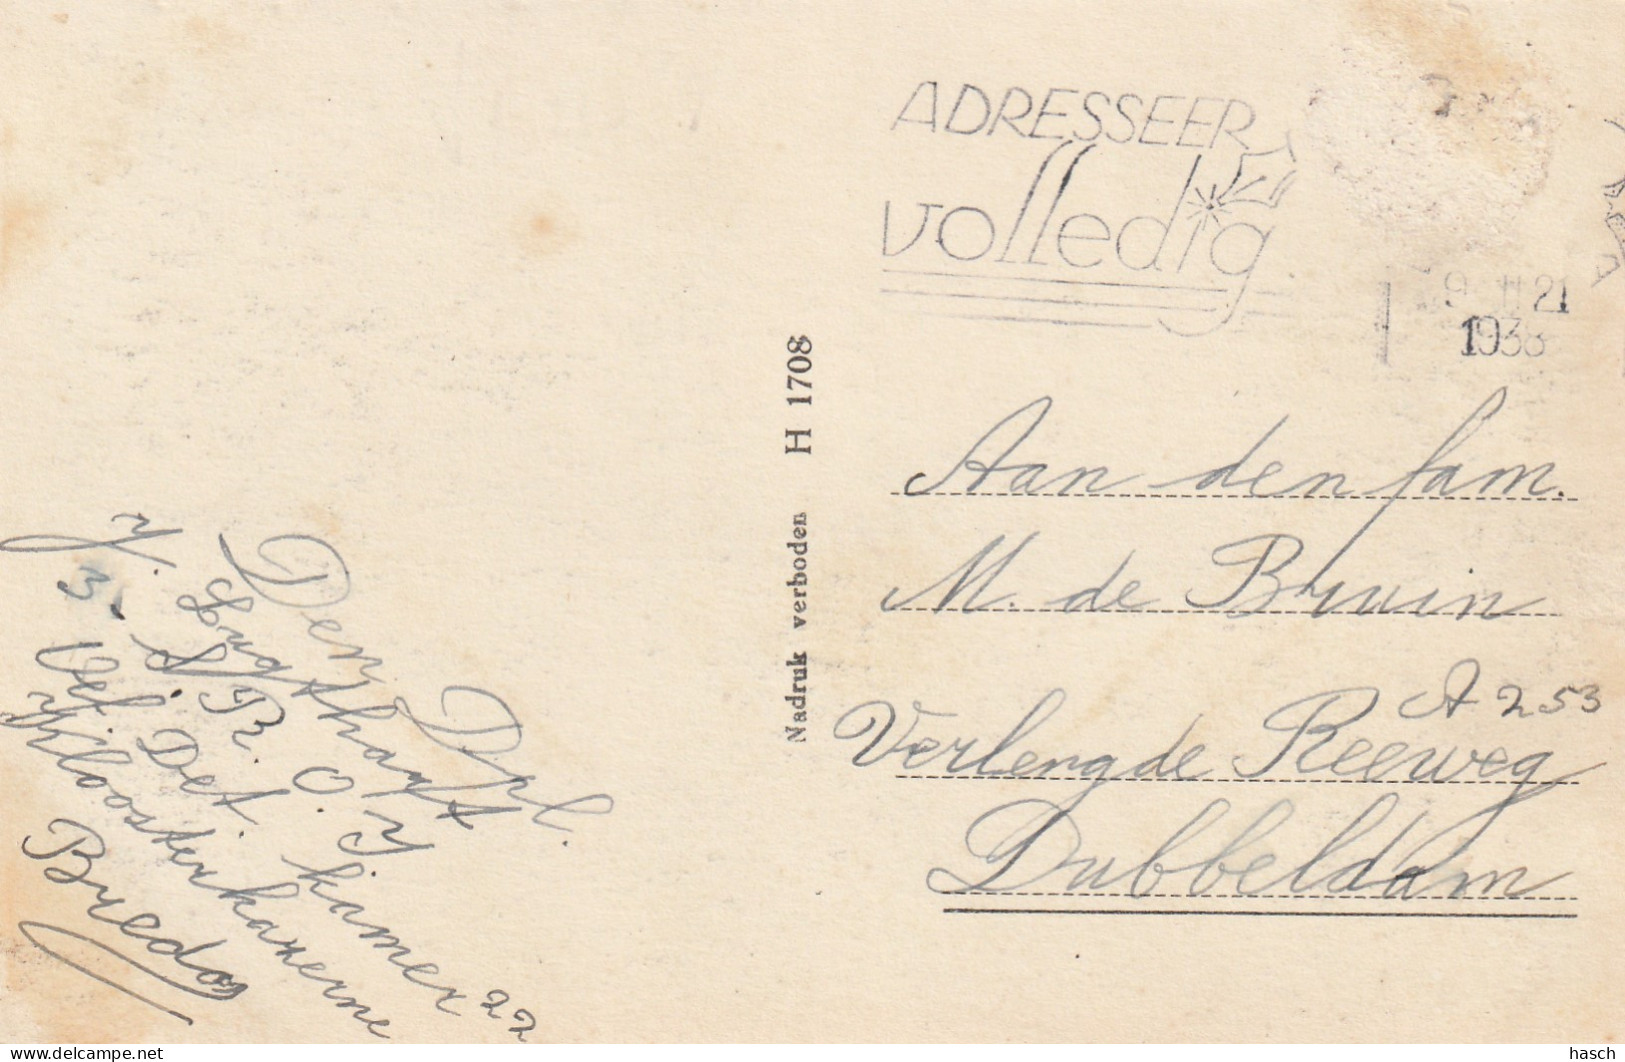 Den Dpl.
J. Lugthart
3. S. R. O. J. kamer 22
Vel Det.
Kloosterkazerne
Breda
Nadruk verboden H 1708
ADRESSEER
volledig
21
1938
Aan den fam.
M. de Bruin
A 253
Verlengde Reeweg
Dubbeldam
delcampe.net
hasch